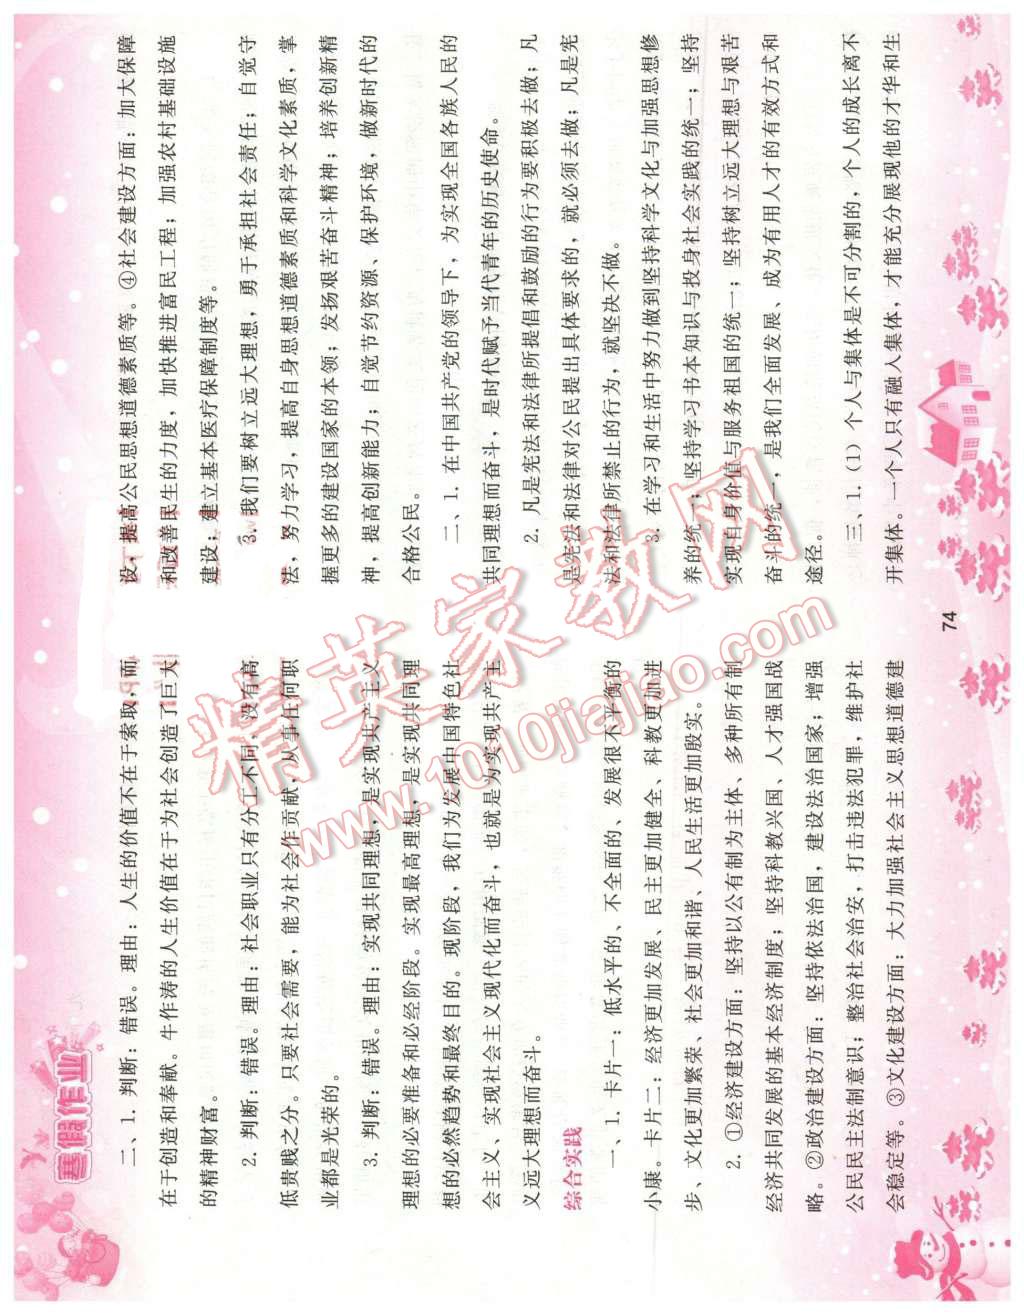 寒假作业
二、1. 判断：错误。理由：人生的价值不在于索取，而
在于创造和奉献。牛作涛的人生价值在于为社会创造了巨大
的精神财富。
2. 判断：错误。理由：社会职业只有分工不同，没有高
低贵贱之分。只要社会需要，能为社会作贡献，从事任何职
业都是光荣的。
3. 判断：错误。理由：实现共同理想，是实现共产主义
理想的必要准备和必经阶段。实现最高理想，是实现共同理
想的必然趋势和最终目的。现阶段，我们为发展中国特色社
会主义、实现社会主义现代化而奋斗，也就是为实现共产主
义远大理想而奋斗。
综合实践
一、1. 卡片一：低水平的、不全面的、发展很不平衡的
小康。卡片二：经济更加发展、民主更加健全、科教更加进
步、文化更加繁荣、社会更加和谐、人民生活更加殷实。
2. ①经济建设方面：坚持以公有制为主体、多种所有制
经济共同发展的基本经济制度；坚持科教兴国、人才强国战
略。②政治建设方面：坚持依法治国，建设法治国家；增强
公民民主法制意识；整治社会治安，打击违法犯罪，维护社
会稳定等。③文化建设方面：大力加强社会主义思想道德建
设，提高公民思想道德素质等。④社会建设方面：加大保障
和改善民生的力度，加快推进富民工程；加强农村基础设施
建设；建立基本医疗保障制度等。
3. 我们要树立远大理想，勇于承担社会责任；自觉守
法，努力学习，提高自身思想道德素质和科学文化素质，掌
握更多的建设国家的本领；发扬艰苦奋斗精神；培养创新精
神，提高创新能力；自觉节约资源、保护环境，做新时代的
合格公民。
二、1. 在中国共产党的领导下，为实现全国各族人民的
共同理想而奋斗，是时代赋予当代青年的历史使命。
2. 凡是宪法和法律所提倡和鼓励的行为要积极去做；凡
是宪法和法律对公民提出具体要求的，就必须去做；凡是宪
法和法律所禁止的行为，就坚决不做。
3. 在学习和生活中努力做到坚持科学文化与加强思想修
养的统一；坚持学习书本知识与投身社会实践的统一；坚持
实现自身价值与服务祖国的统一；坚持树立远大理想与艰苦
奋斗的统一，是我们全面发展、成为有用人才的有效方式和
途径。
三、1.（1）个人与集体是不可分割的，个人的成长离不
开集体。一个人只有融入集体，才能充分展现他的才华和生
74
精英家教网
www.1010jiajiao.com